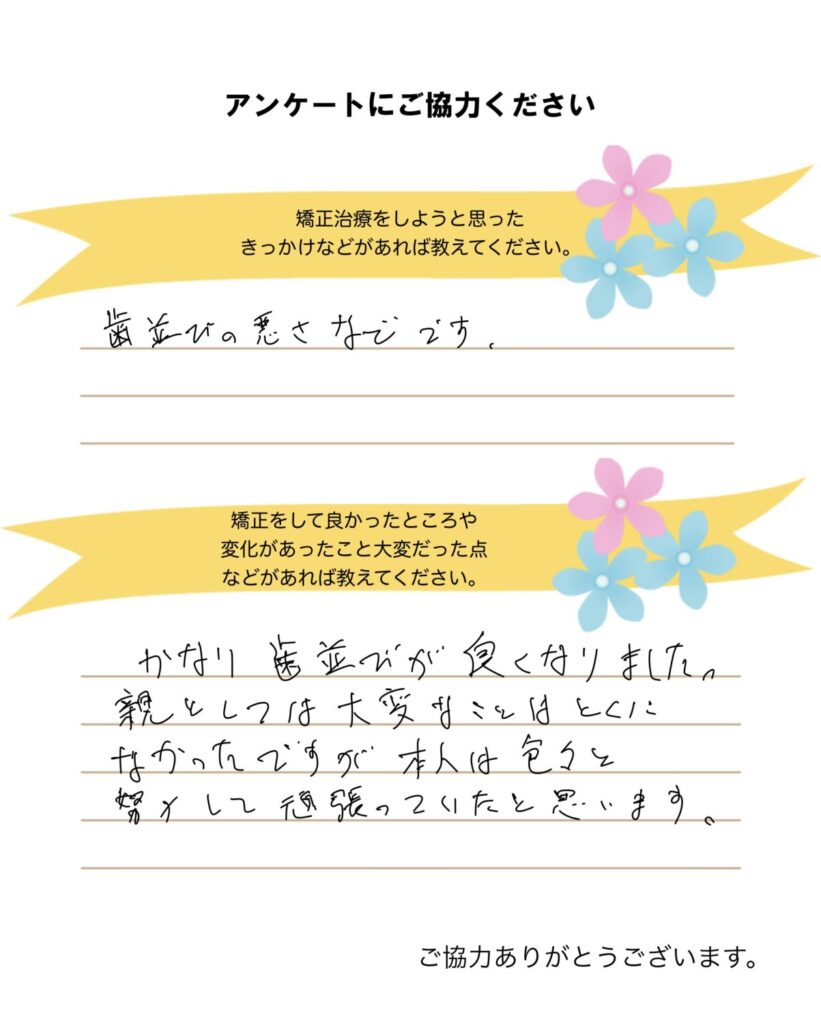 アンケートにご協力ください
矯正治療をしようと思った
きっかけなどがあれば教えてください。
歯並びの悪さなどです.
矯正をして良かったところや
変化があったこと大変だった点
などがあれば教えてください。
かなり歯並びが良くなりました。
親としては大変なことはとくに
なかったですが本人は色々と
努力して頑張っていたと思います。
ご協力ありがとうございます。